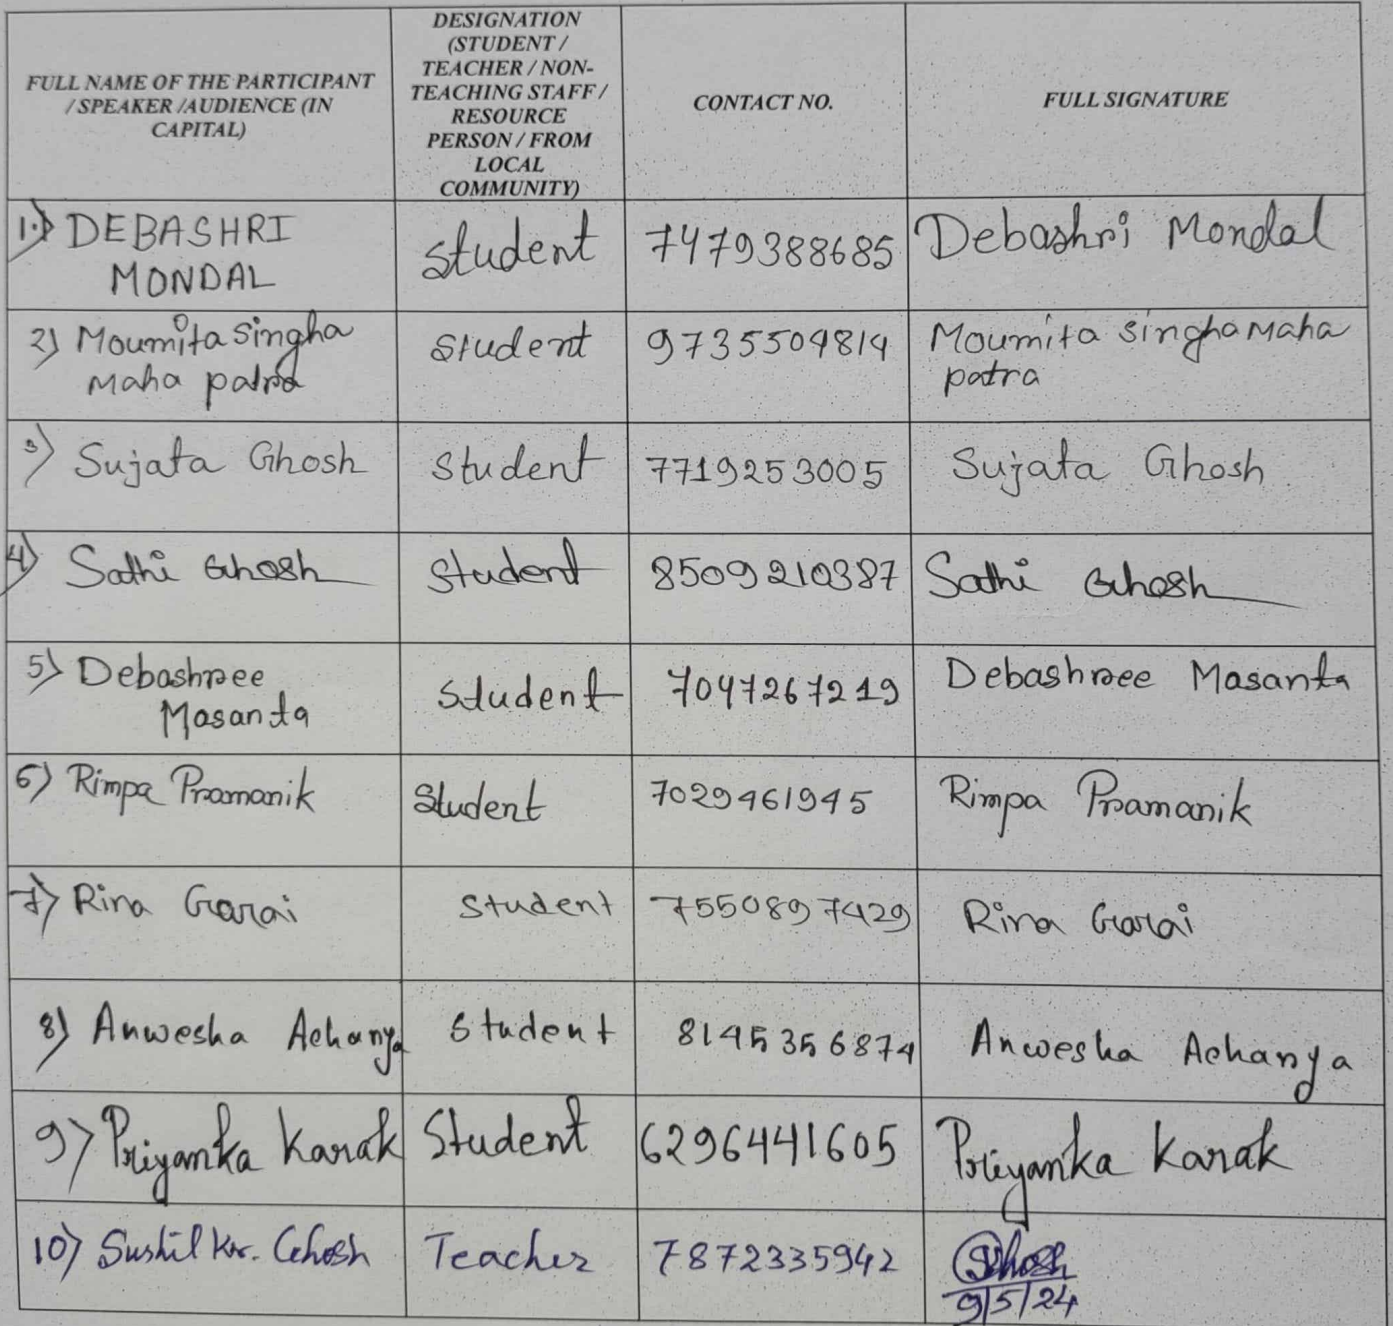 FULL NAME OF THE PARTICIPANT
/ SPEAKER /AUDIENCE (IN
CAPITAL)
DESIGNATION
(STUDENT /
TEACHER / NON-
TEACHING STAFF /
RESOURCE
PERSON / FROM
LOCAL
COMMUNITY)
CONTACT NO.
FULL SIGNATURE
1.) DEBASHRI
MONDAL
Student
7479388685
Debashri Mondal
2) Moumita Singha
Maha patra
Student
9735504814
Moumita singha Maha
patra
3) Sujata Ghosh
Student
7719253005
Sujata Ghosh
4) Sathi Ghosh
Student
8509210387
Sathi Ghosh
5) Debashree
Masanta
Student
7047267219
Debashree Masanta
6) Rimpa Pramanik
Student
7029461945
Rimpa Pramanik
7) Rina Garai
Student
7550897429
Rina Garai
8) Anwesha Acharya
Student
8145356874
Anwesha Acharya
9) Priyanka Karak
Student
6296441605
Priyanka Karak
10) Sushil Kr. Ghosh
Teacher
7872335942
SGhosh
9/5/24